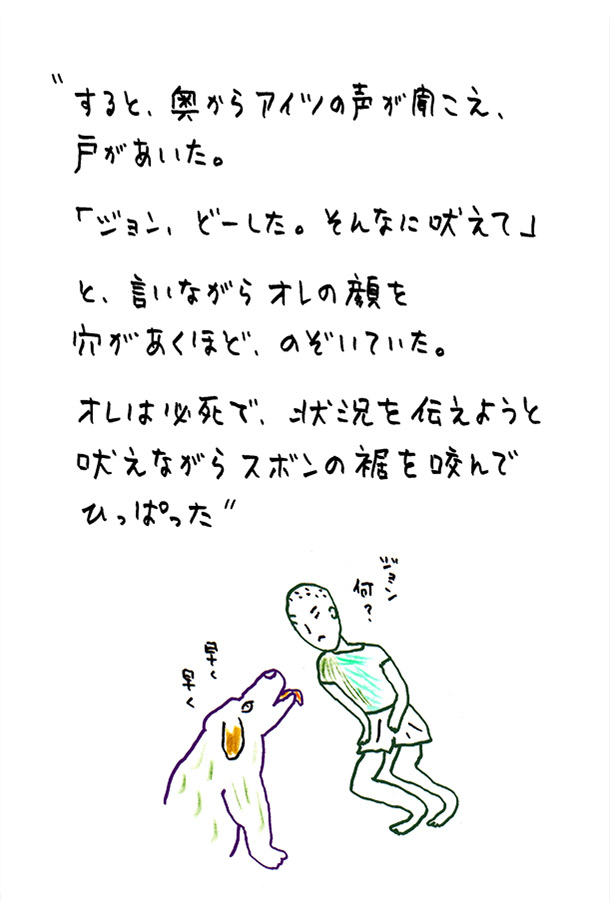 "すると、奥からアイツの声が聞こえ、
戸があいた。
「ジョン、どーした。そんなに吠えて」
と、言いながらオレの顔を
穴があくほど、のぞいていた。
オレは必死で、状況を伝えようと
吠えながらズボンの裾を咬んで
ひっぱった"
ジョン
何?
早く
早く